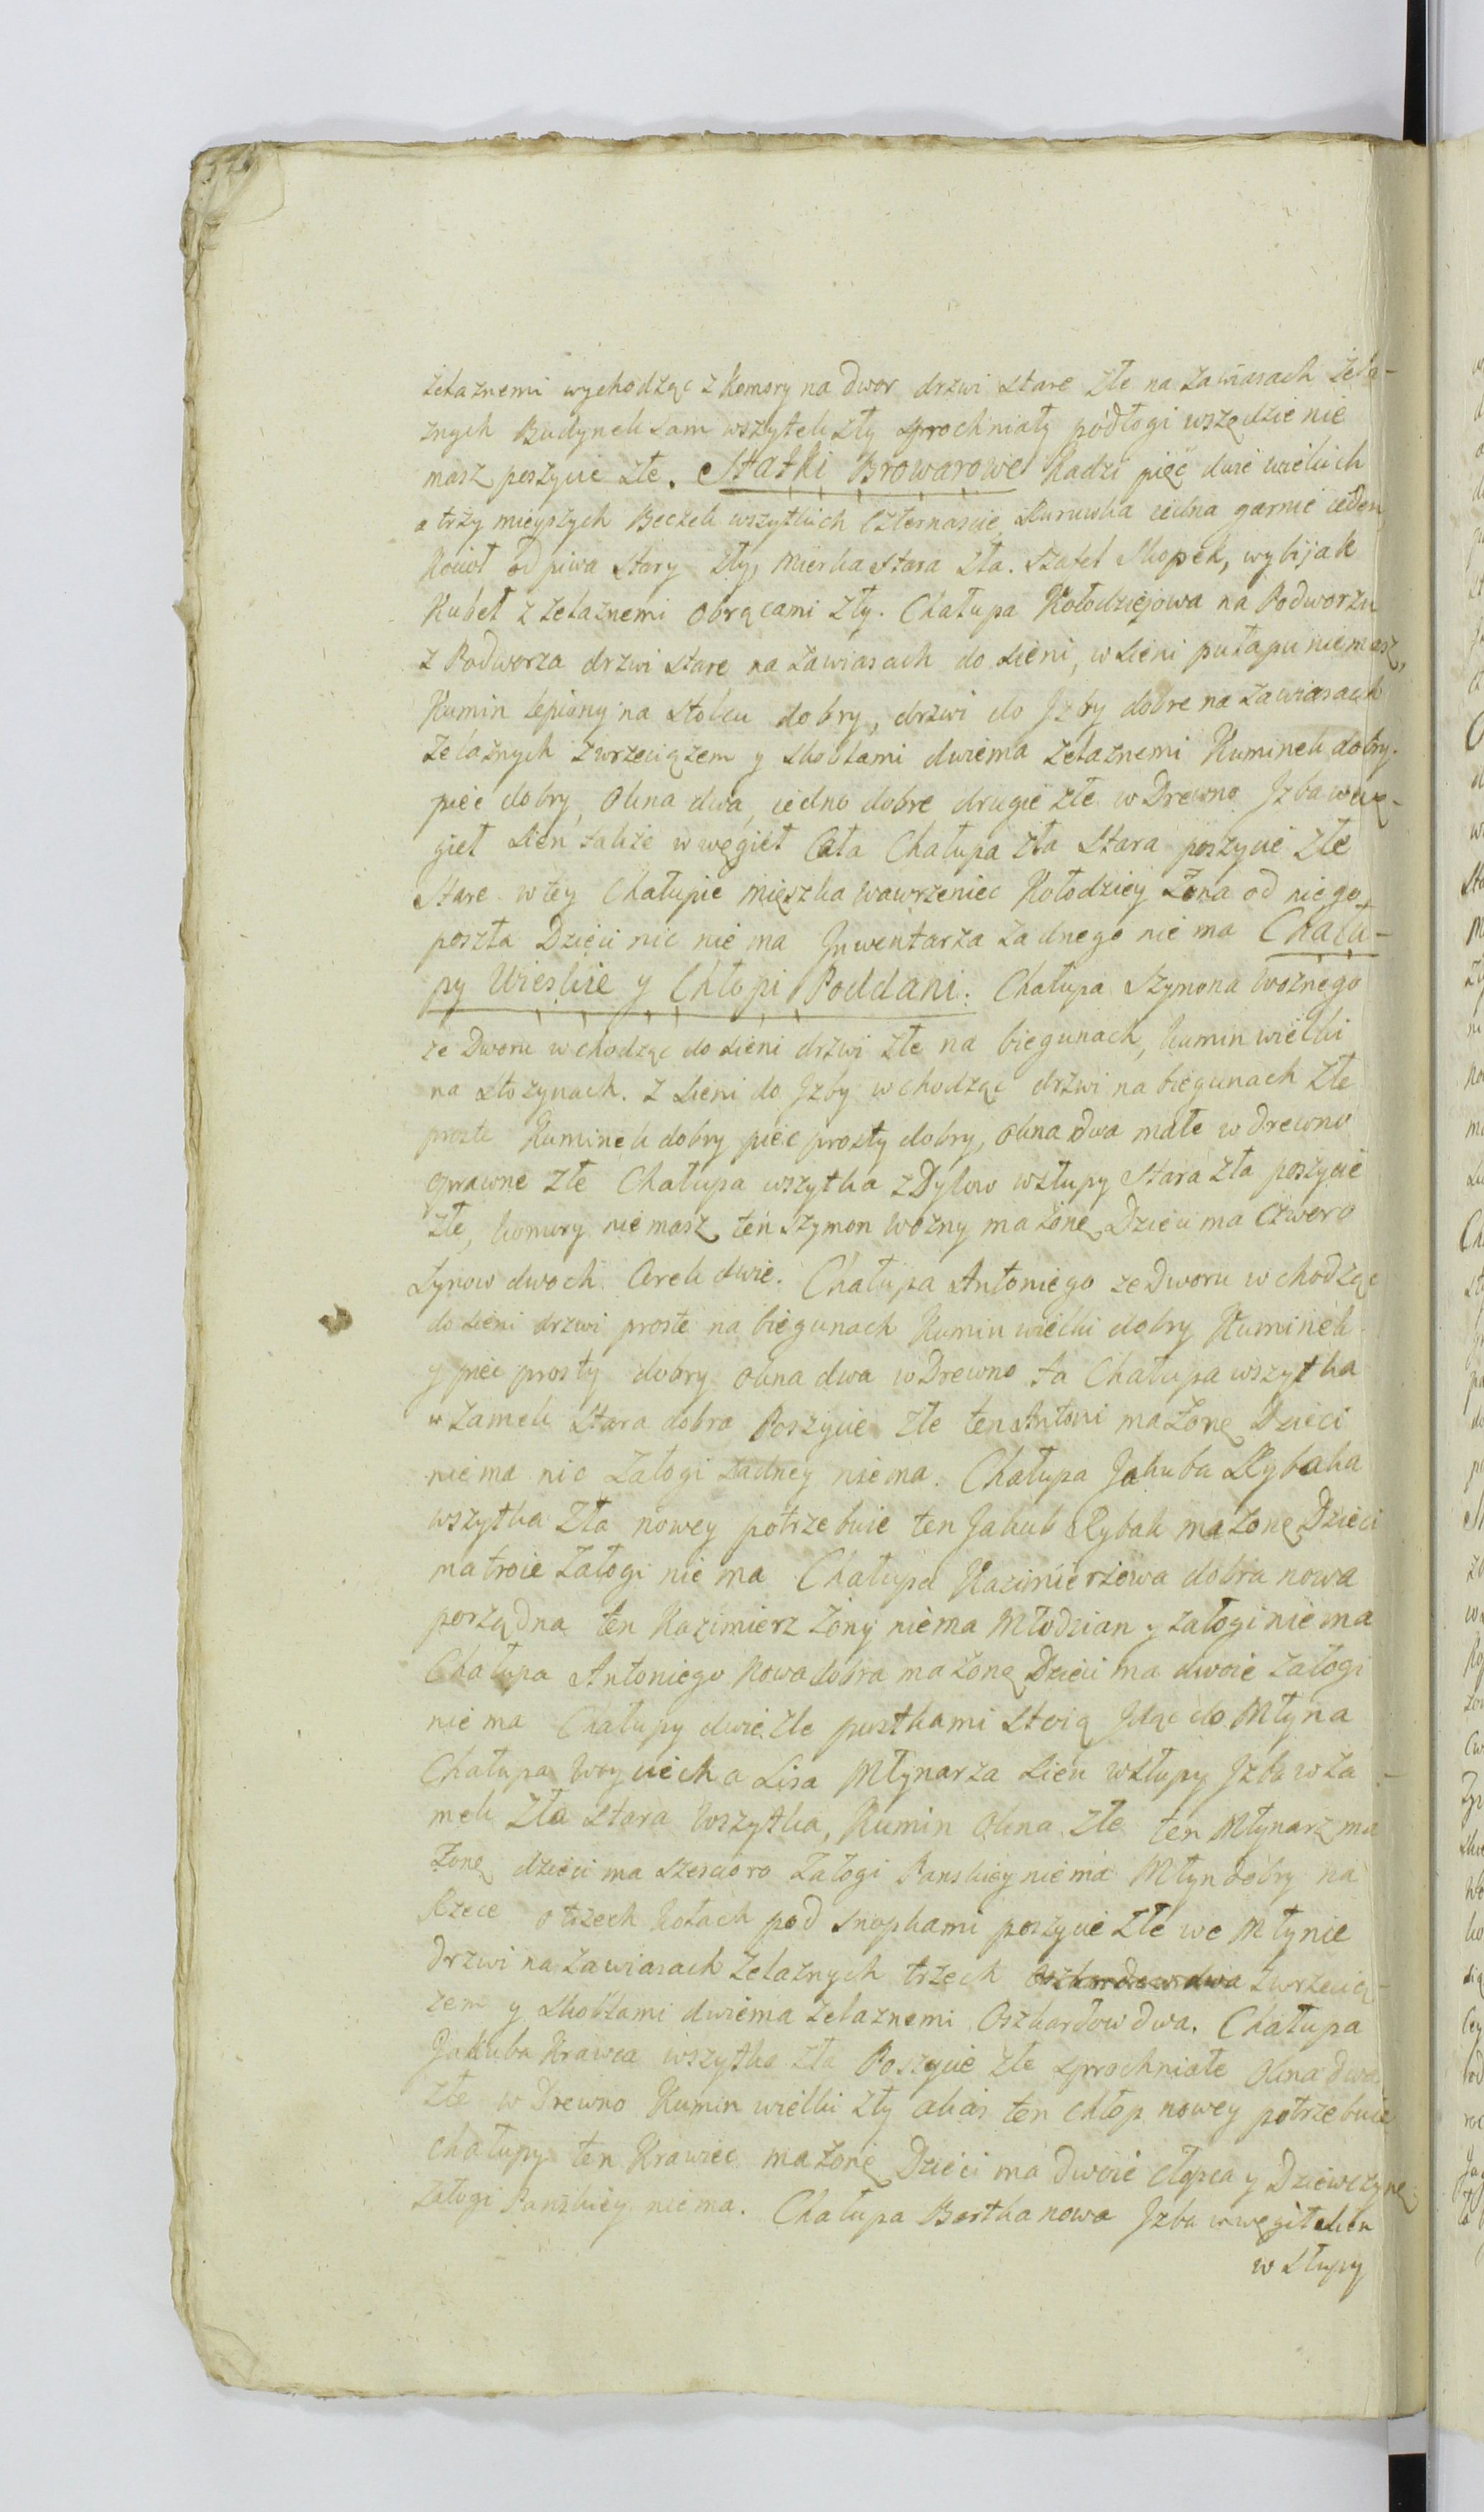 żelaznemi wychodząc z Komory na dwor drzwi stare złe na zawiasach żela-
znych Budynek sam wszytek zły sprochniały podłogi wszędzie nie
masz poszycie złe. Statki Browarowe Kadzi pięć dwie wielkich
a trzy mieyszych Beczek wszytkich czternascie, Kurwika iedna garnie ieden
Kocioł od piwa stary zły, mierka stara zła. szafel Skopek, wybijak
Kubeł z żelaznemi obrącami zły. Chałupa Kołodziejowa na Podworzu
z Podworza drzwi stare na zawiasach do sieni, w sieni pułapu niemasz,
Kumin lepiony na stolcu dobry, drzwi do Jzby dobre na zawiasach
żelaznych z wrzeciązem y skoblami dwiema żelaznemi Kuminek dobry.
piec dobry, okna dwa, iedno dobre drugie złe w Drewno Jzba w wę-
gieł sień także w węgieł Cała Chałupa zła stara poszycie złe
stare w tey Chałupie mieszka Wawrzeniec Kołodziey żona od niego
poszła Dzieci nic nie ma Jnwentarza żadnego nie ma Chału-
py Wieskie y Chłopi Poddani. Chałupa Szymona Woznego
ze Dworu wchodząc do sieni drzwi złe na biegunach, kumin wielki
na stozynach. z sieni do Jzby wchodząc drzwi na biegunach złe
proste Kuminek dobry piec prosty dobry, okna dwa małe w Drewno
oprawne złe Chałupa wszytka z Dylow w słupy stara zła poszycie
złe, komory nie masz ten Szymon Wozny ma żonę Dzieci ma czworo
synow dwoch Corek dwie. Chałupa Antoniego ze Dworu wchodząc
do sieni drzwi proste na biegunach Kumin wielki dobry Kuminek
y piec prosty dobry okna dwa w Drewno ta Chałupa wszytka
w zamek stara dobra Poszycie złe ten Antoni ma żonę Dzieci
nie ma nic załogi żadney nie ma. Chałupa Jakuba Rybaka
wszytka zła nowey potrzebuie ten Jakub Rybak ma żonę Dzieci
ma troie załogi nie ma Chałupa Kazimierzowa dobra nowa
porządna ten Kazimierz żony nie ma Młodzian y załogi nie ma
Chałupa Antoniego nowa dobra ma żonę Dzieci ma dwoie załogi
nie ma Chałupy dwie złe pustkami stoią Jdąc do Młyna
Chałupa Woyciecha Lisa Młynarza sień w słupy Jzba w za-
mek zła stara wszytka, Kumin okna złe ten Młynarz ma
żonę dzieci ma szescioro załogi Panskiey nie ma Młyn dobry na
Rzece o trzech Kołach pod snopkami poszycie złe we Młynie
drzwi na zawiasach żelaznych trzech Oszkardow dwa z wrzecią-
zem y skoblami dwiema żelaznemi Oszkardow dwa. Chałupa
Jakuba Krawca wszytka zła Poszycie złe sprochniałe okna dwa
złe w Drewno Kumin wielki zły alias ten chłop nowey potrzebuie
chałupy ten Krawiec ma żonę Dzieci ma dwoie cłopca y Dziewczynę
załogi Panskiey nie ma. Chałupa Bartka nowa Jzba w węgieł sień
w słupy